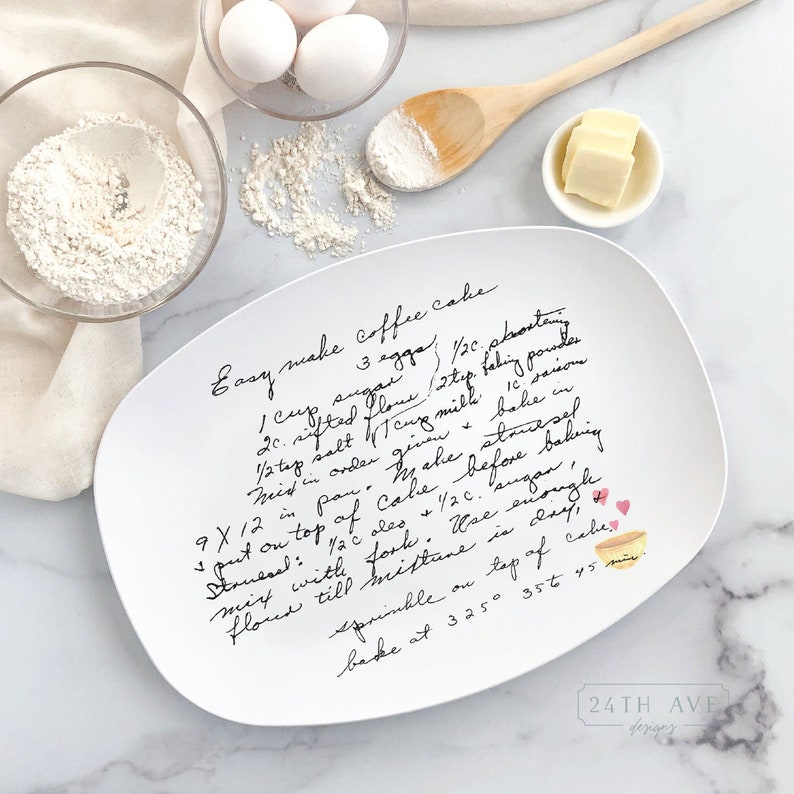 Easy make coffee cake
3 eggs
1 cup sugar } 1/2c. shortening
2c. sifted flour } 2 tsp. baking powder
1/2 tsp salt 1 cup milk 1c. raisins
Mix in order given & bake in
9 X 12 in pan. Make struesel
& put on top of cake before baking
Struesel: 1/2 c oleo & 1/2 c. sugar,
mix with fork. Use enough
flour till mixture is dry, &
sprinkle on top of cake.
bake at 325° 35 to 45 min.
24TH AVE
designs